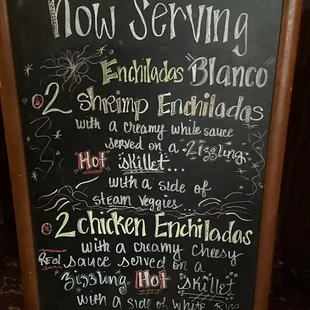 Now Serving
Enchiladas "Blanco
2 Shrimp Enchiladas
with a creamy white sauce
served on a Zizzling
Hot skillet...
with a side of
steam veggies...
2 chicken Enchiladas
with a creamy cheesy
Red sauce served on a
Zizzling Hot skillet
with a side of white Rice